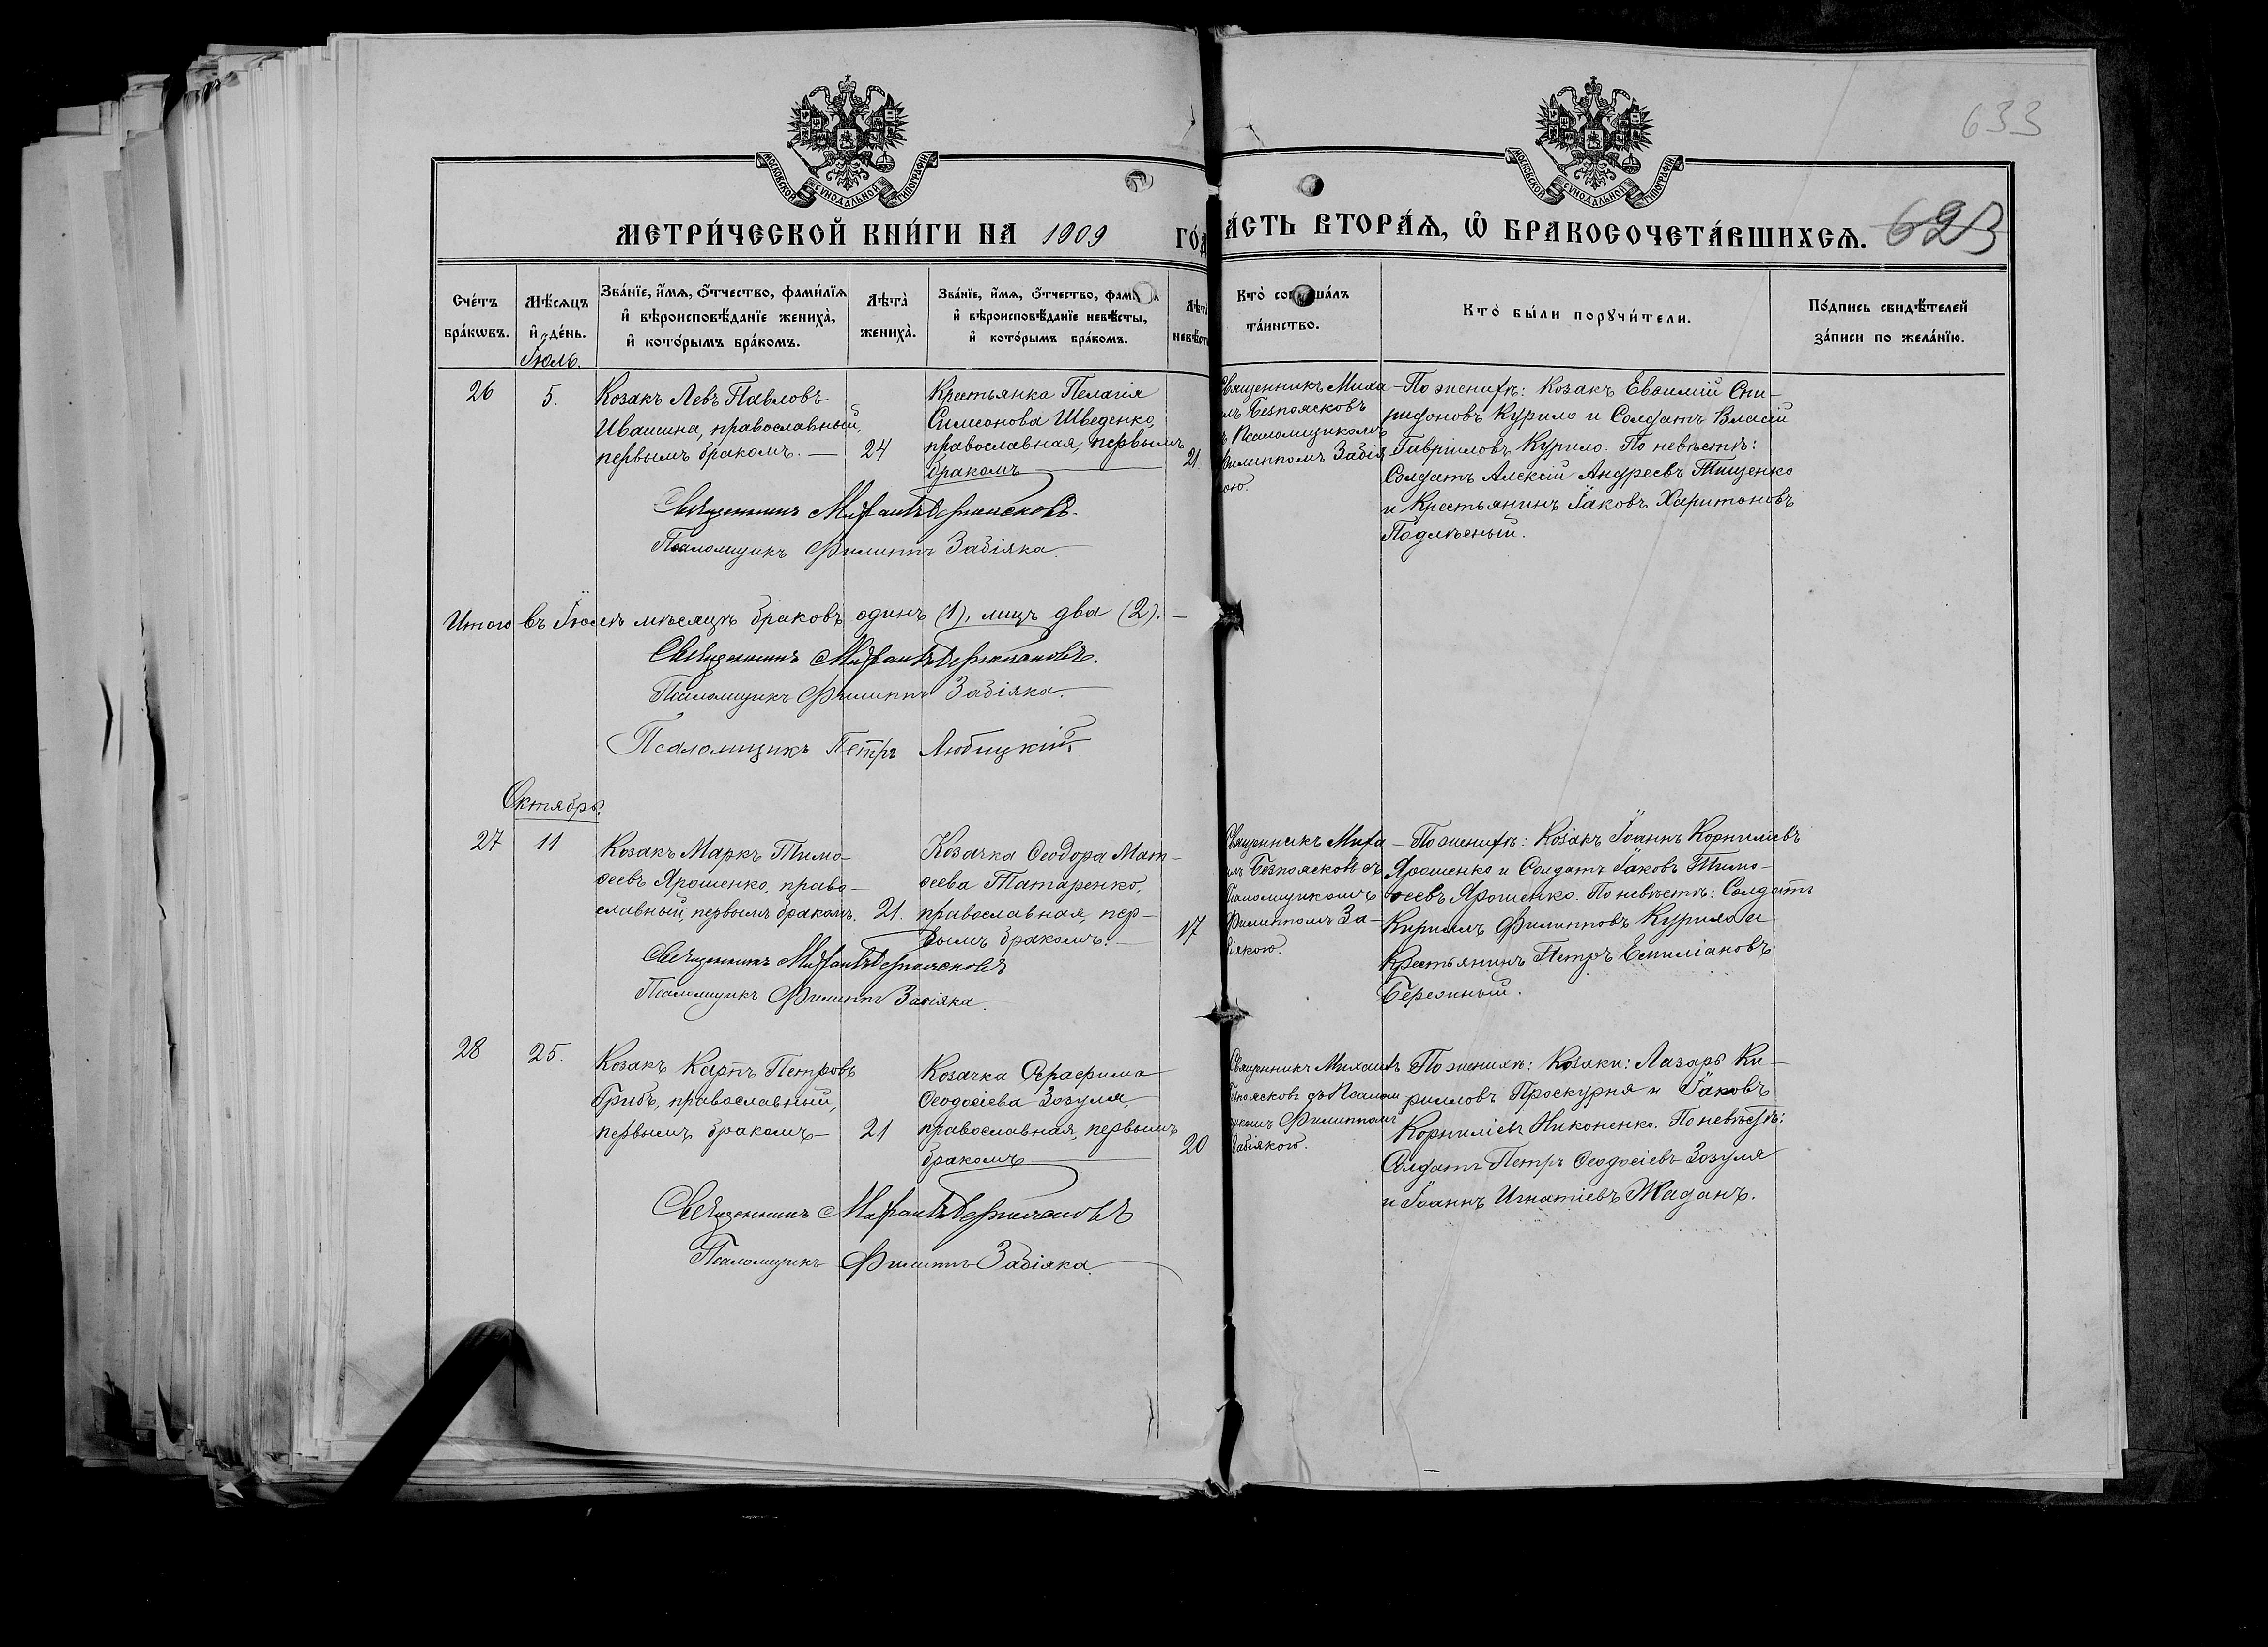 633
МОСКОВСКОЙ СУНОДАЛЬНОЙ ТИПОГРАФІИ
МОСКОВСКОЙ СУНОДАЛЬНОЙ ТИПОГРАФІИ
МЕТРИ́ЧЕСКОЙ КНИ́ГИ НА 1909 ГО́Д
А́СТЬ ВТОРА́Ѧ, Ѡ҆ БРАКОСОЧЕТА́ВШИХСѦ. 623
Сче́тъ бра́кѡвъ.
Мѣ́сѧцъ и҆ де́нь.
Зва́нїе, и҆́мѧ, ѻ҆́тчество, фами́лїѧ и҆ вѣроисповѣ́данїе жениха̀, и҆ кото́рымъ бра́комъ.
Лѣта̀ жениха̀.
Зва́нїе, и҆́мѧ, ѻ҆́тчество, фам и҆ вѣроисповѣ́данїе невѣ́сты, и҆ кото́рымъ бра́комъ.
Лѣта невѣст
Кто̀ со ша́лъ та́инство.
Кто̀ бы́ли порꙋчи́тели.
По́дпись свидѣ́телей за́писи по жела́нїю.
Іюль.
26
5.
Козакъ Левъ Павловъ
Ивашина, православный,
первымъ бракомъ. —
24
Крестьянка Пелагія
Симеонова Шведенко,
православная, первымъ
бракомъ
21
Священникъ Миха-
лъ Безпоясковъ
ъ Псаломщикомъ
Филиппомъ Забія-
ою.
По женихѣ: Козакъ Евѳимій Спи-
ридоновъ Курило и Солдатъ Власій
Гавріиловъ Курило. По невѣстѣ:
Солдатъ Алексій Андреевъ Тищенко
и Крестьянинъ Іаковъ Харитоновъ
Подлѣсный.
Священникъ Михаилъ Безпоясковъ.
Псаломщикъ Филиппъ Забіяка.
Итого въ Іюлѣ мѣсяцѣ браковъ одинъ (1), лицъ два (2). —
Священникъ Михаилъ Безпоясковъ.
Псаломщикъ Филиппъ Забіяка.
Псаломщикъ Петръ Любицкій
Октябрь.
27
11
Козакъ Маркъ Тимо-
ѳеевъ Ярошенко, право-
славный, первымъ бракомъ.
21.
Козачка Ѳеодора Мат-
ѳеева Татаренко,
православная, пер-
вымъ бракомъ. —
17
Священникъ Миха-
илъ Безпоясковъ съ
Псаломщикомъ
Филиппомъ За-
біякою.
По женихѣ: Козакъ Іоаннъ Корниліевъ
Ярошенко и Солдатъ Іаковъ Тимо-
ѳеевъ Ярошенко. По невѣстѣ: Солдатъ
Кириллъ Филипповъ Курило и
Крестьянинъ Петръ Емиліановъ
Березный.
Священникъ Михаилъ Безпоясковъ
Псаломщикъ Филиппъ Забіяка.
28
25.
Козакъ Карпъ Петровъ
Грибъ, православный,
первымъ бракомъ —
21
Козачка
Ѳеодосіева Зозуля,
православная, первымъ
бракомъ
20
Священникъ Михаилъ
Безпоясковъ съ Псалом
щикомъ Филиппомъ
Забіякою.
По женихѣ: Козаки: Лазарь Ки-
рилловъ Проскурня и Іаковъ
Корниліевъ Никоненко. По невѣстѣ:
Солдатъ Петръ Ѳеодосіевъ Зозуля
и Іоаннъ Игнатіевъ Жаданъ.
Священникъ Михаилъ Безпоясковъ
Псаломщикъ Филиппъ Забіяка.